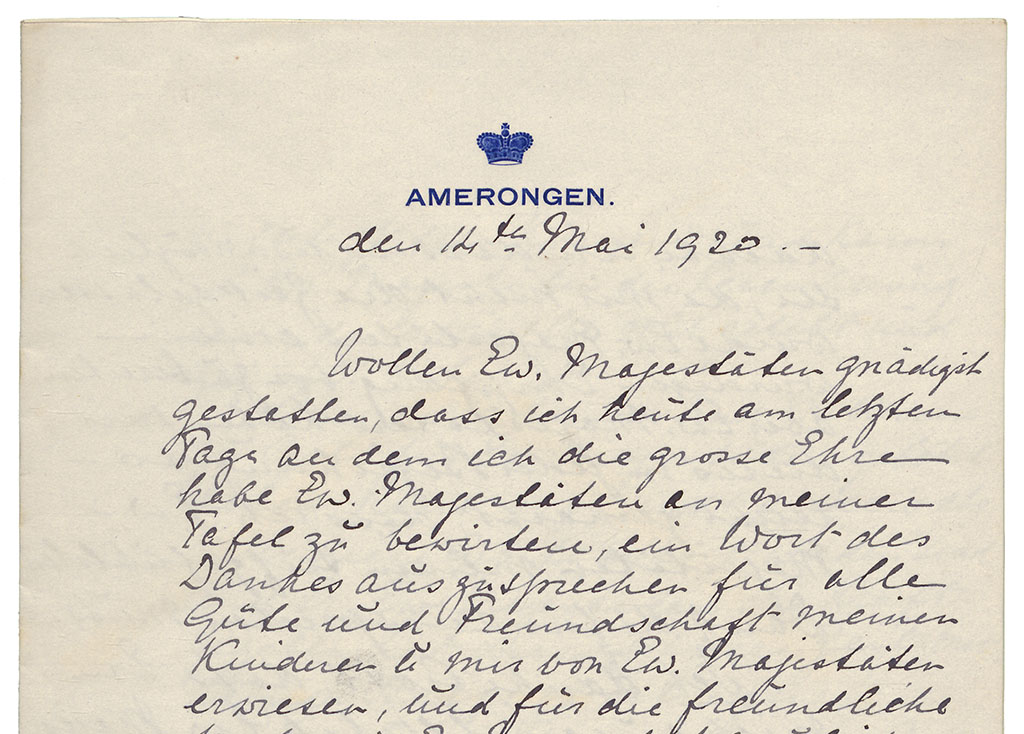 AMERONGEN.
den 14ten Mai 1920.-
Wollen Ew. Majestäten gnädigst
gestatten, dass ich heute am letzten
Tage an dem ich die grosse Ehre
habe Ew. Majestäten an meiner
Tafel zu bewirten, ein Wort des
Dankes auszusprechen für alle
Güte und Freundschaft meinen
Kinderen u mir von Ew. Majestäten
erwiesen, und für die freundliche